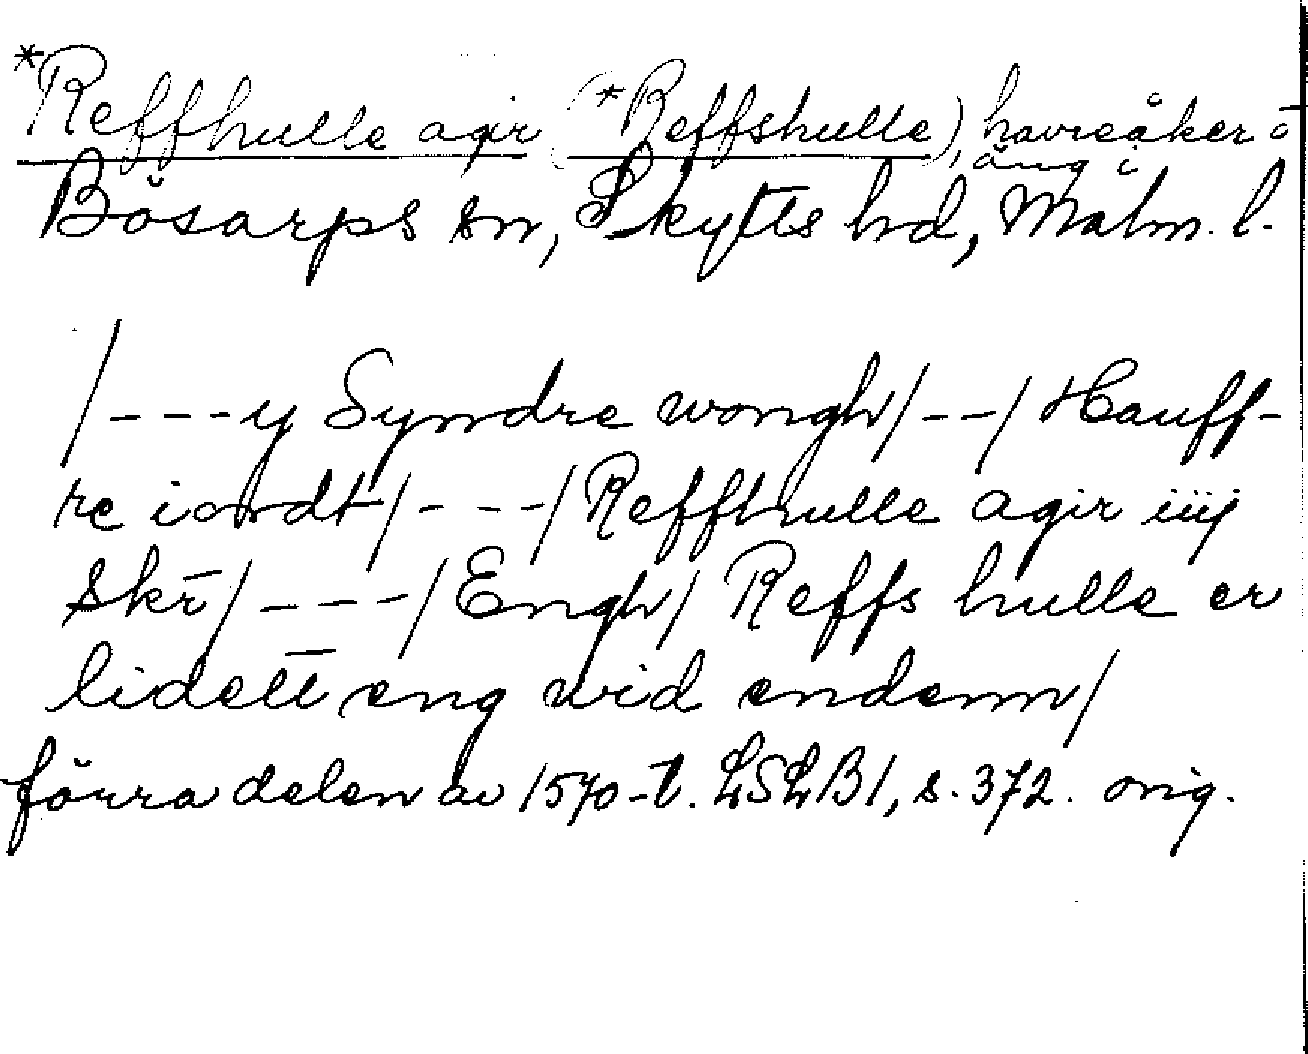 *Reffhulle agir (*Reffshulle), havreåker o
äng i
Bösarps sn, Skytts hd, Malm. l.
/---y Syndre wongh/--/ Hauff-
re iordt/---/Reffhulle agir iiij
skr̄/---/Engh/ Reffs hulle er
lidett̄ eng wid endenn/
förra delen av 1570-t. LSLB1, s. 372. orig.